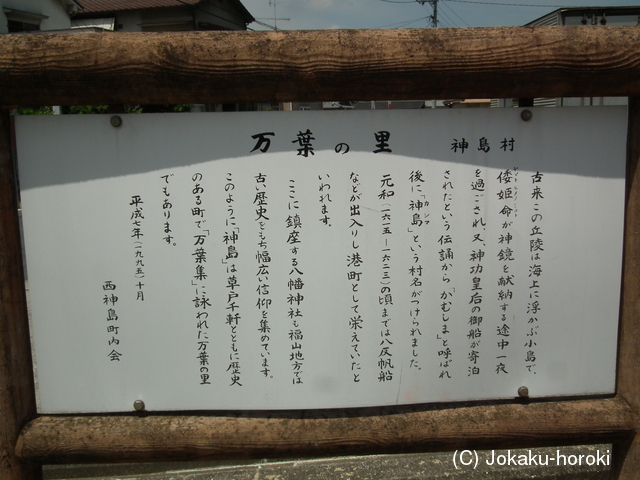 万葉の里　神島村
古来この丘陵は海上に浮かぶ小島で、
倭姫命が神鏡を献納する途中一夜
を過ごされ、又、神功皇后の御船が寄泊
されたという伝誦から「かむしま」と呼ばれ
後に「神島」という村名がつけられました。
カシマ
元和（一六一五－一六二三）の頃までは八反帆船
などが出入りし港町として栄えていたと
いわれます。
ここに鎮座する八幡神社も福山地方では
古い歴史をもち幅広い信仰を集めています。
このように「神島」は草戸千軒とともに歴史
のある町で「万葉集」に詠われた万葉の里
でもあります。
平成七年（一九九五）十月
西神島町内会
(C) Jokaku-horoki